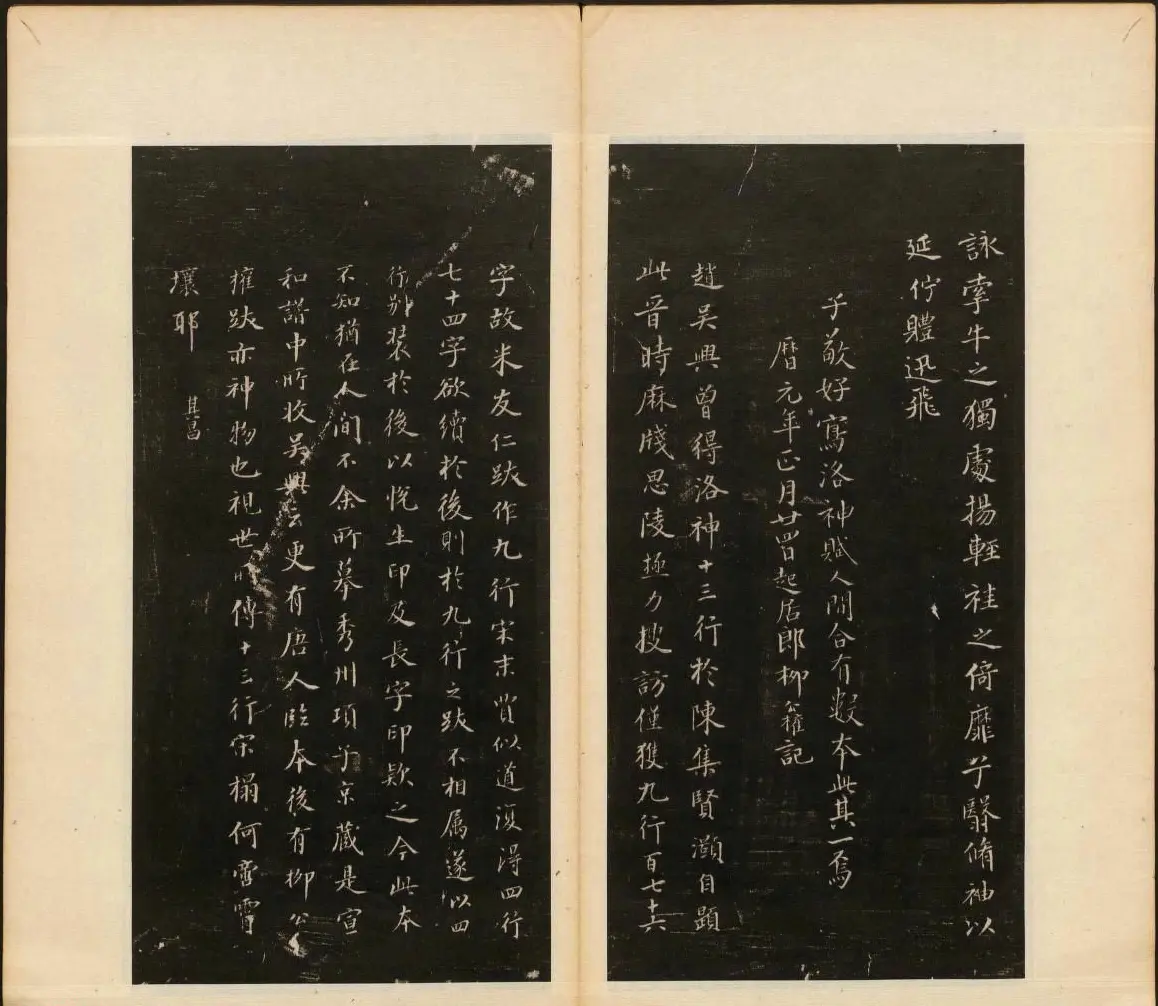 詠牽牛之獨處揚輕袿之倚靡兮翳脩袖以
延佇體迅飛
子敬好寫洛神賦人間合有數本此其一焉
曆元年正月廿四日起居郎柳公權記
趙吳興曾得洛神十三行於陳集賢灝自題
此晉時麻牋思陵極力搜訪僅獲九行百七十六
字故米友仁跋作九行宋末賈似道復得四行
七十四字欲續於後則於九行之跋不相屬遂以四
行別裝於後以悅生印及長字印款之今此本
不知猶在人間不余所摹秀州項子京藏是宣
和譜中所收吳興云更有唐人臨本後有柳公
權跋亦神物也視世所傳十三行宋榻何啻霄
壤耶 其昌